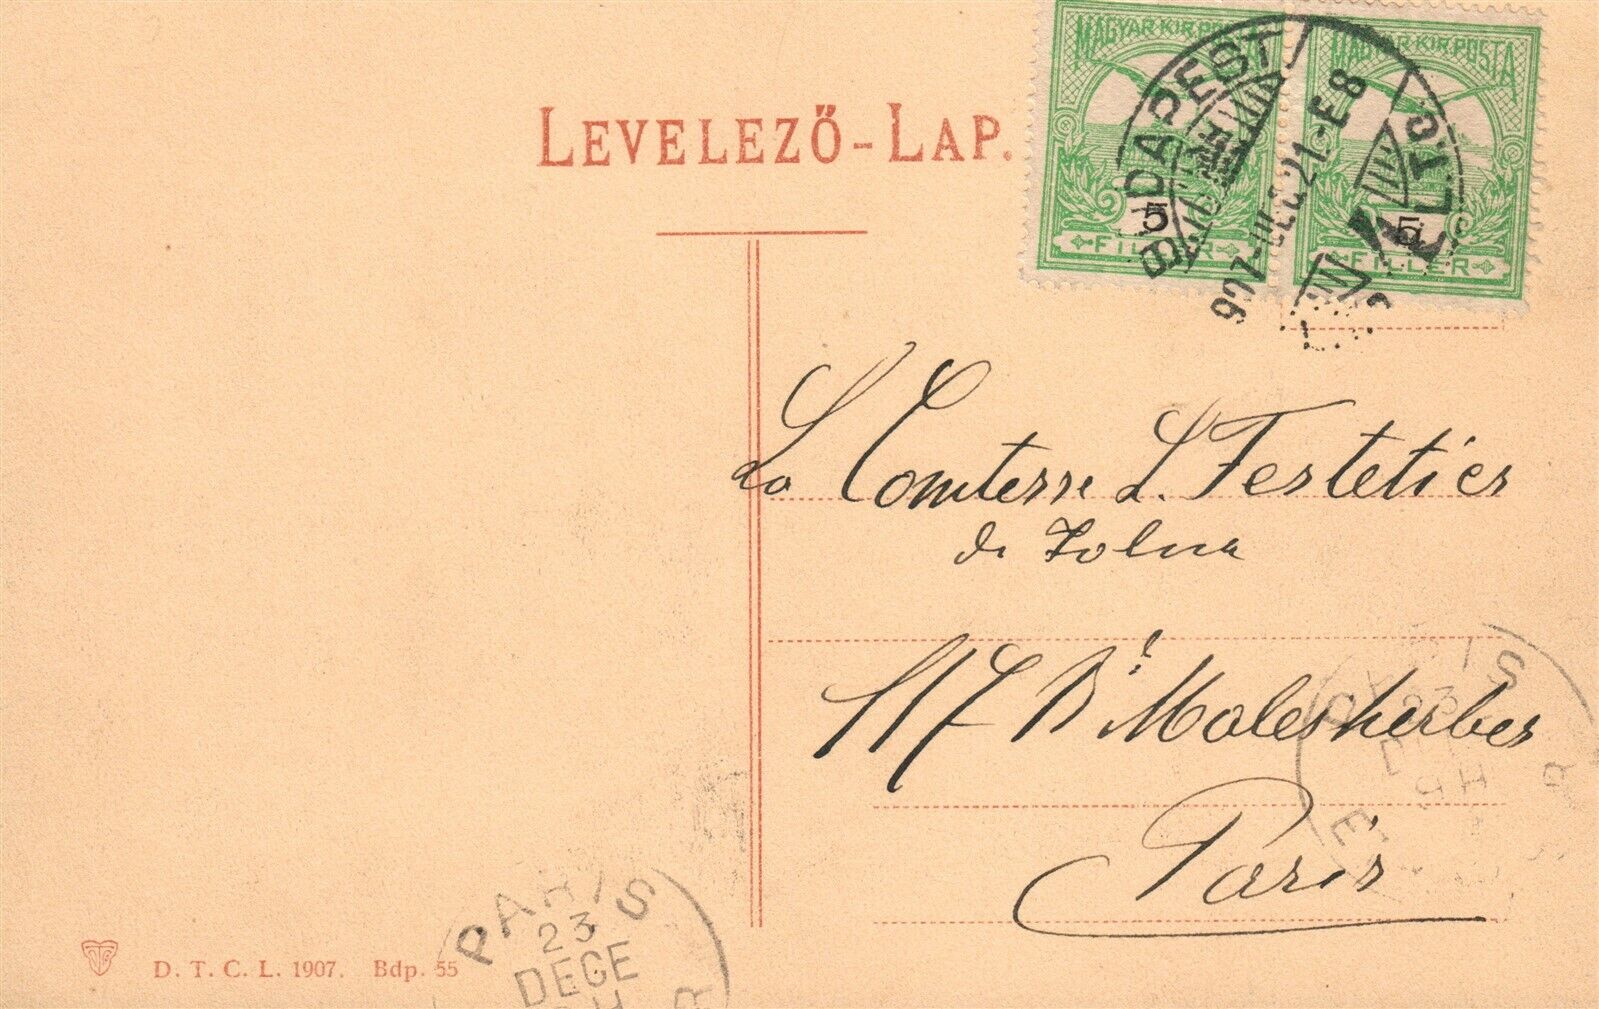 MAGYAR KIR. POSTA MAGYAR KIR. POSTA
5 5
FILLER FILLER
BUDAPEST
907 DEC 21 E8
LEVELEZŐ-LAP.
La Comtesse L. Festetics
de Tolna
117 Bd Malesherbes
Paris
PARIS
23
PARIS
23
DECE
D. T. C. L. 1907. Bdp. 55